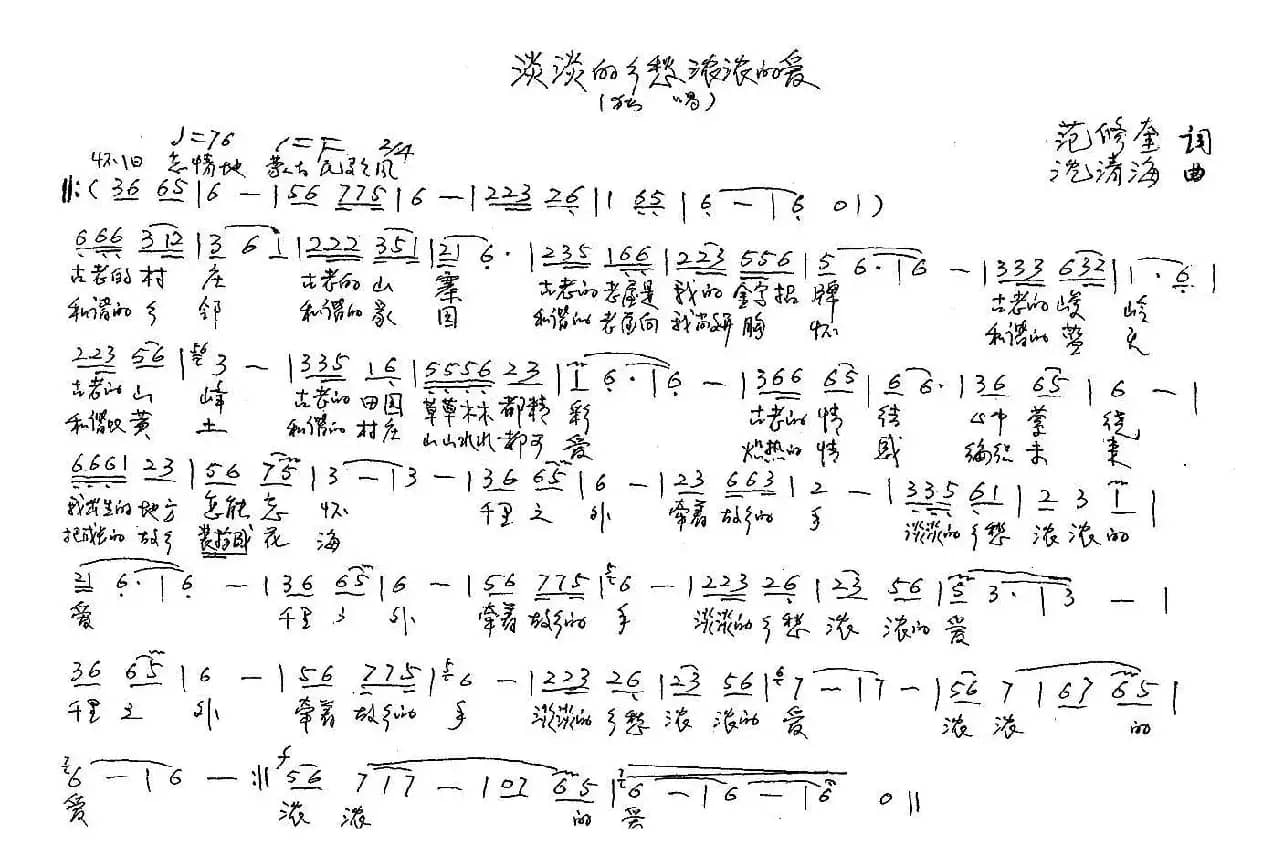 淡淡的乡愁浓浓的爱
(独 唱)
♩=76 1=F 2/4
范修奎 词
怀旧 忘情地 蒙古民歌风
沈清海 曲
‖:( 36 65 | 6 - | 56 775 | 6 - | 223 26 | 1 65 | 6 - | 6 0 | )
666 312 | 3 6 1 | 222 351 | 21 6· | 235 166 | 223 556 | 5 6· | 6 - | 333 632 | 1· 6 |
古老的村 庄 古老的山 寨 古老的老屋是 我的 金字招 牌 古老的峻 岭
和谐的乡 邻 和谐的家 园 和谐的老屋向 我尚妍 胸 怀 和谐的 天
223 56 | 3 - | 335 16 | 5556 23 | 1 6· | 6 - | 366 65 | 6 6· | 36 65 | 6 - |
古老的山 峰 古老的田园 草草木木都精 彩 古老的情 结 心中萦 绕
和谐的黄 土 和谐的村庄 山山水水都可 爱 炽热的情 感 编织未 来
6661 23 | 56 75 | 3 - | 3 - | 36 65 | 6 - | 23 663 | 2 - | 335 61 | 2 3 1 |
我出生的地方 怎能忘 怀 千里之 外 牵着故乡的 手 淡淡的乡愁 浓 浓的
把成长的故乡 装扮成花 海
21 6· | 6 - | 36 65 | 6 - | 56 775 | 6 - | 223 26 | 23 56 | 5 3· | 3 - |
爱 千里之 外 牵着故乡的 手 淡淡的乡愁 浓 浓的 爱
36 65 | 6 - | 56 775 | 6 - | 223 26 | 23 56 | 7 - | 7 - | 56 7 | 67 65 |
千里之 外 牵着故乡的 手 淡淡的乡愁 浓 浓的 爱 浓 浓 的
6 - | 6 - :‖ f 56 7 | 7 - | 07 65 | 6 - | 6 - | 6 0 ‖
爱 浓 浓 的 爱